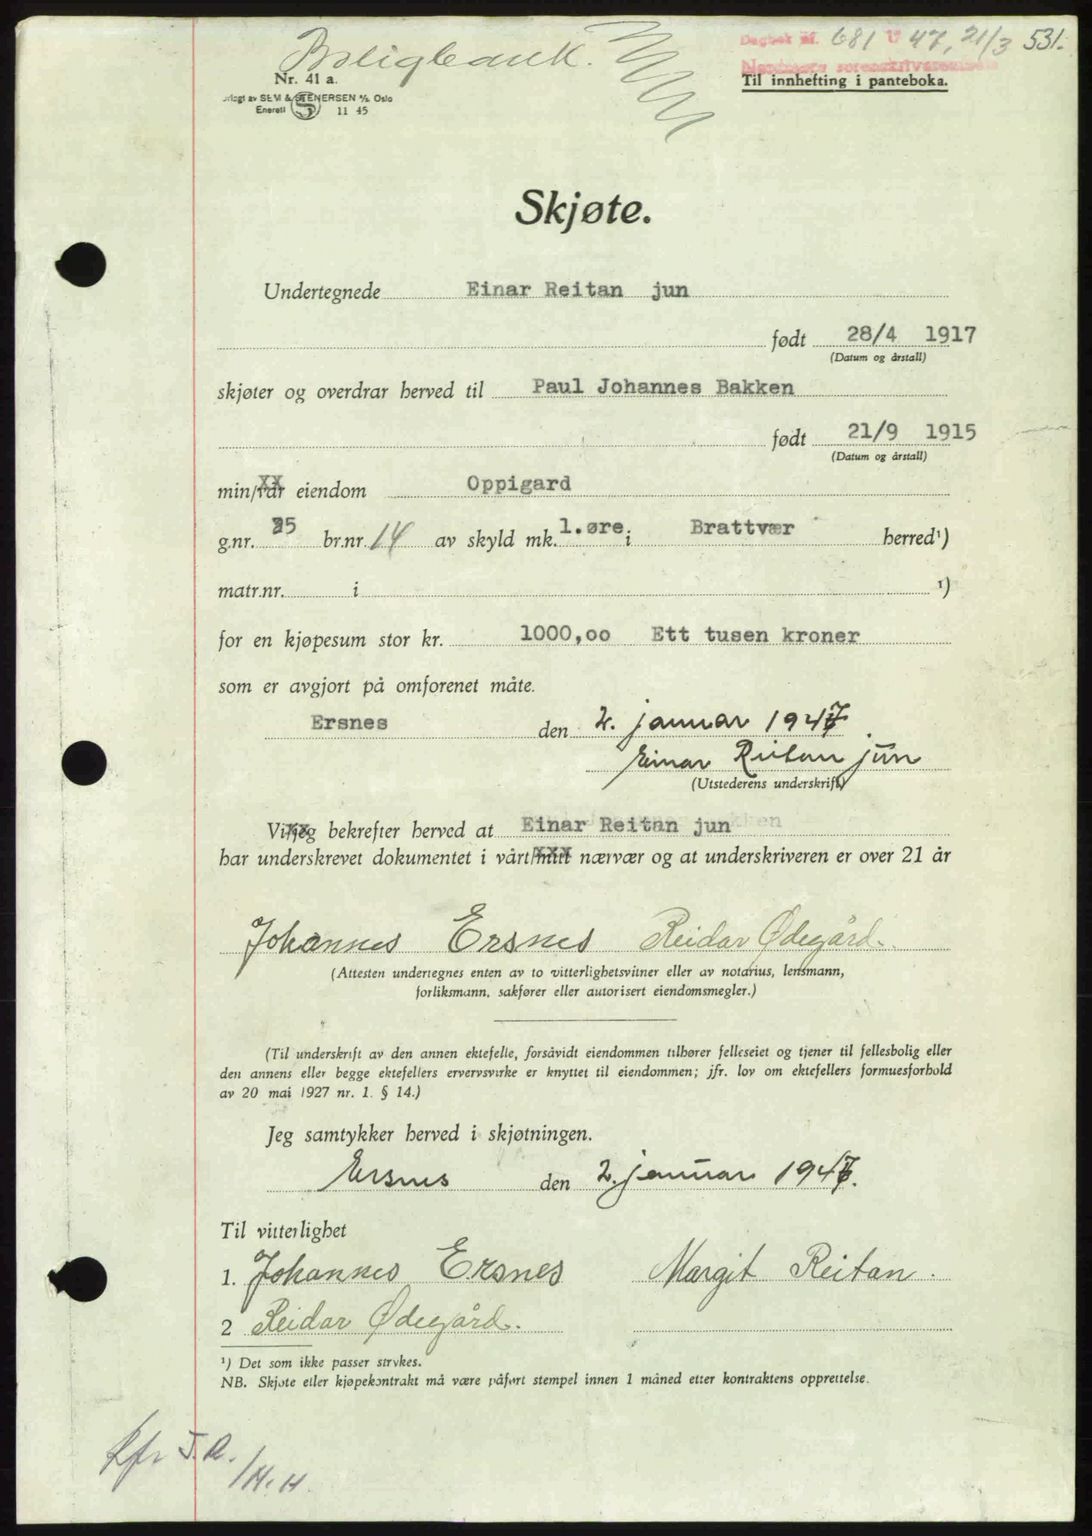 Boligbank.
Dagbok nr. 681 19 47, 21/3 531.
Nordmøre sorenskriverembete
Nr. 41 a.
Til innhefting i panteboka.
Forlagt av SEM & STENERSEN A/S, Oslo
Enerett S 11 45
Skjøte.
Undertegnede Einar Reitan jun
født 28/4 1917
(Datum og årstall)
skjøter og overdrar herved til Paul Johannes Bakken
født 21/9 1915
(Datum og årstall)
min/vår eiendom Oppigard
g.nr. 25 br.nr. 14 av skyld mk. 1.øre i Brattvær herred¹)
matr.nr. i ¹)
for en kjøpesum stor kr. 1000,oo Ett tusen kroner
som er avgjort på omforenet måte.
Ersnes den 2. januar 1947
Einar Reitan jun
(Utstederens underskrift)
Vi/jeg bekrefter herved at Einar Reitan jun
har underskrevet dokumentet i vårt/mitt nærvær og at underskriveren er over 21 år
Johannes Ersnes Reidar Ødegård.
(Attesten undertegnes enten av to vitterlighetsvitner eller av notarius, lensmann,
forliksmann, sakfører eller autorisert eiendomsmegler.)
(Til underskrift av den annen ektefelle, forsåvidt eiendommen tilhører felleseiet og tjener til fellesbolig eller
den annens eller begge ektefellers ervervsvirke er knyttet til eiendommen; jfr. lov om ektefellers formuesforhold
av 20 mai 1927 nr. 1. § 14.)
Jeg samtykker herved i skjøtningen.
Ersnes den 2. januar 1947.
Til vitterlighet
1. Johannes Ersnes Margit Reitan.
2 Reidar Ødegård.
¹) Det som ikke passer strykes.
NB. Skjøte eller kjøpekontrakt må være påført stempel innen 1 måned etter kontraktens opprettelse.
Kfr J.R.
/H.H.